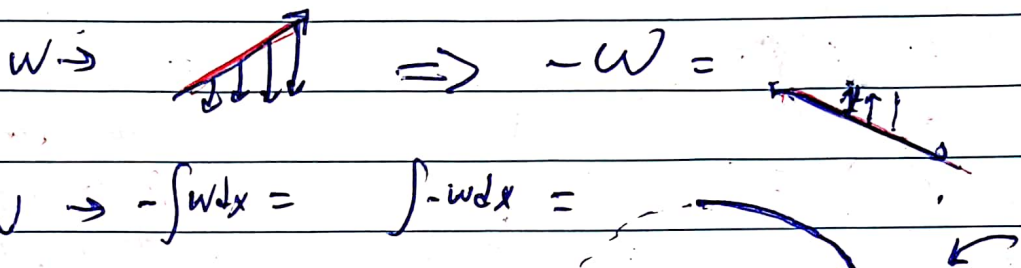 W → ⇒ -W =
→ -∫wdx = ∫-wdx =